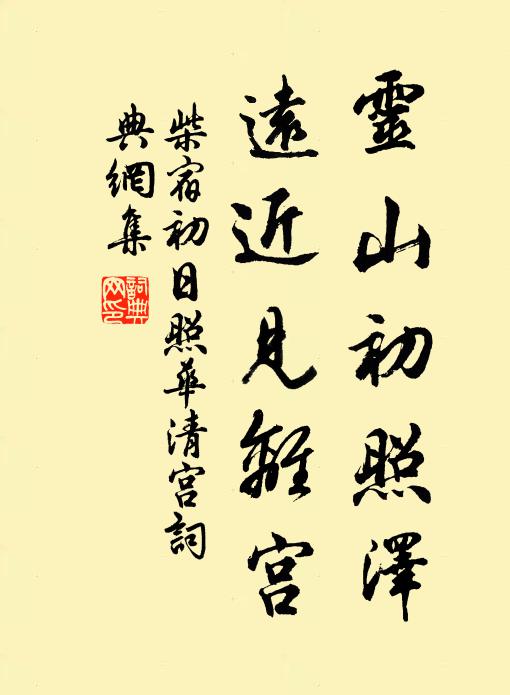 靈山初照澤
遠近見離宮
柴宿初日照華清宮詞
典網集
詞典網印